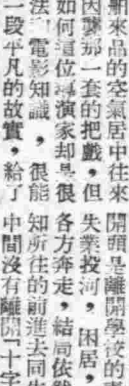 來品的空氣居中往來
因襲那一套的把戲，但
如何這位導演家却是很
法和電影知識，很能
一段平凡的故實，給了
開頭是離開學校的
失業投河，困居，
各方奔走，結局依然
知所往的前進去同
中間沒有離開「十字